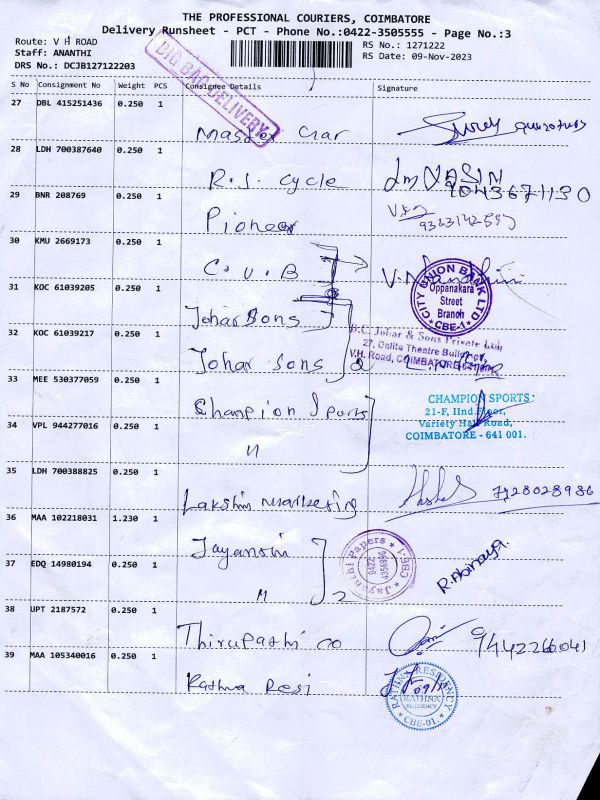 THE PROFESSIONAL COURIERS, COIMBATORE
Delivery Runsheet - PCT - Phone No.:0422-3505555 - Page No.:3
Route: V H ROAD
Staff: ANANTHI
DRS No.: DCJB127122203
RS No.: 1271222
RS Date: 09-Nov-2023
BIG BAG DELIVERY
S No Consignment No Weight PCS Consignee Details Signature
27 DBL 415251436 0.250 1
Master Car
28 LDH 700387640 0.250 1
R.S. Cycle
9043671130
29 BNR 208769 0.250 1
Pioneer
30 KMU 2669173 0.250 1
C.U.B
V.Nandhini
CITY UNION BANK LTD
Oppanakara
Street
Branch
CBE-1
31 KOC 61039205 0.250 1
Johar Sons
32 KOC 61039217 0.250 1
Johar Sons 2
B.C. Johar & Sons Private Ltd.
27, Delite Theatre Building,
V.H. Road, COIMBATORE
33 MEE 530377059 0.250 1
Champion Sports
CHAMPION SPORTS
21-F, IInd Floor,
Variety Hall Road,
COIMBATORE - 641 001.
34 VPL 944277016 0.250 1
"
35 LDH 700388825 0.250 1
Lakshmi Marketing
7128028986
36 MAA 102218031 1.230 1
Jayanthi
Jayanthi Papers
0422
4356996
CBE-1
37 EDQ 14980194 0.250 1
" 2
R.Abinaya.
38 UPT 2187572 0.250 1
Thirupathi co
9442266041
39 MAA 105340016 0.250 1
Rathna Resi
RATHNA RESIDENCY
RATHNA
RESIDENCY
CBE-01